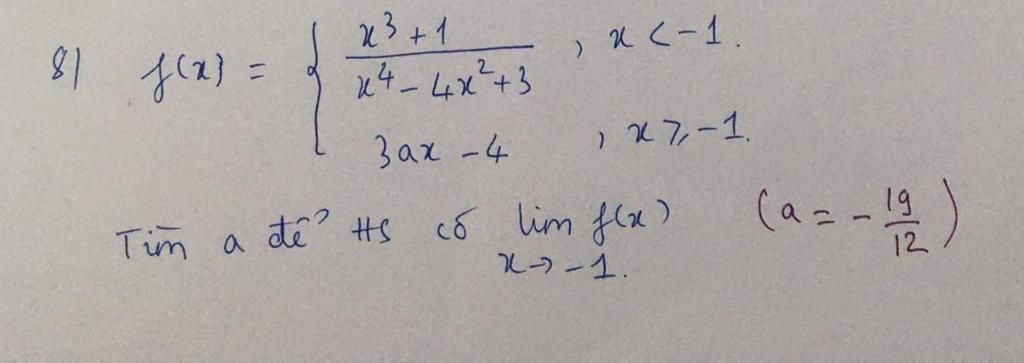 8) f(x) = { (x³ + 1)/(x⁴ - 4x² + 3) , x < -1.
3ax - 4 , x ⩾ -1.
Tìm a để HS có lim f(x) (a = - 19/12)
x → -1.